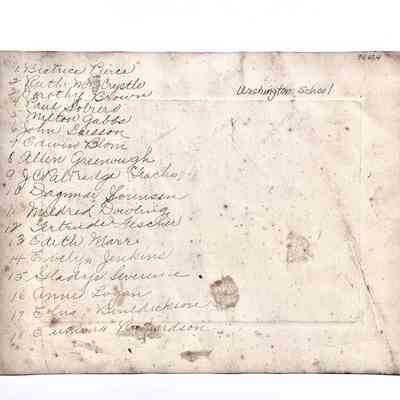 Washington School
1 Beatrice Pierce
2 Ruth McCrystle
3 Dorothy Brown
4 Paul Sobers
5 Milton Gabbs
6 John Larsson
7 Edwin Blom
8 Allen Greenough
9 J C Partridge (Teacher)
10 Dagmar Sorensen
11 Mildred Dowling
12 Gertrude Fischer
13 Edith Marr
14 Evelyn Jenkins
15 Gladys Severine
16 Anne Logan
17 Edna Benedickson
18 Richardson